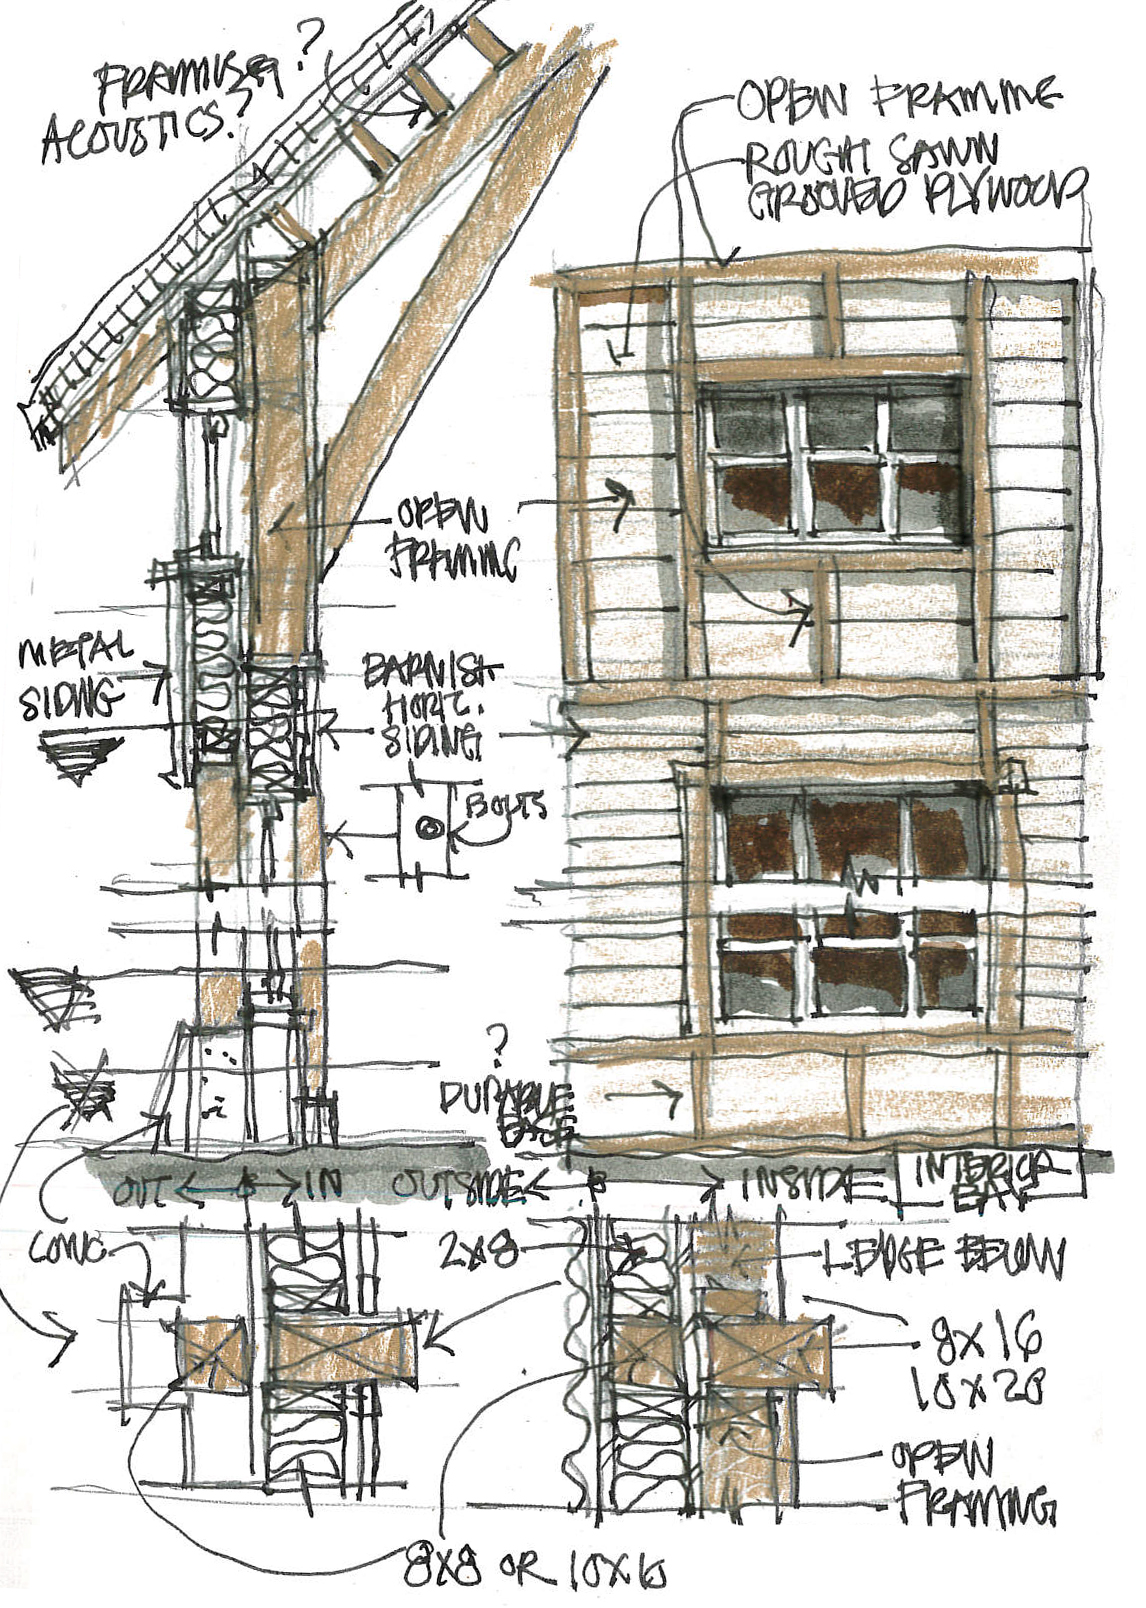 FRAMING?
ACOUSTICS?
OPEN FRAMING
ROUGH SAWN
GROOVED PLYWOOD
OPEN
FRAMING
METAL
SIDING
BARNISH
HORIZ.
SIDING
BOLTS
?
DURABLE
BASE
OUT
IN
OUTSIDE
INSIDE
INTERIOR
BAY
CONC
2X8
LEDGE BELOW
8X16
10X20
OPEN
FRAMING
8X8 OR 10X10